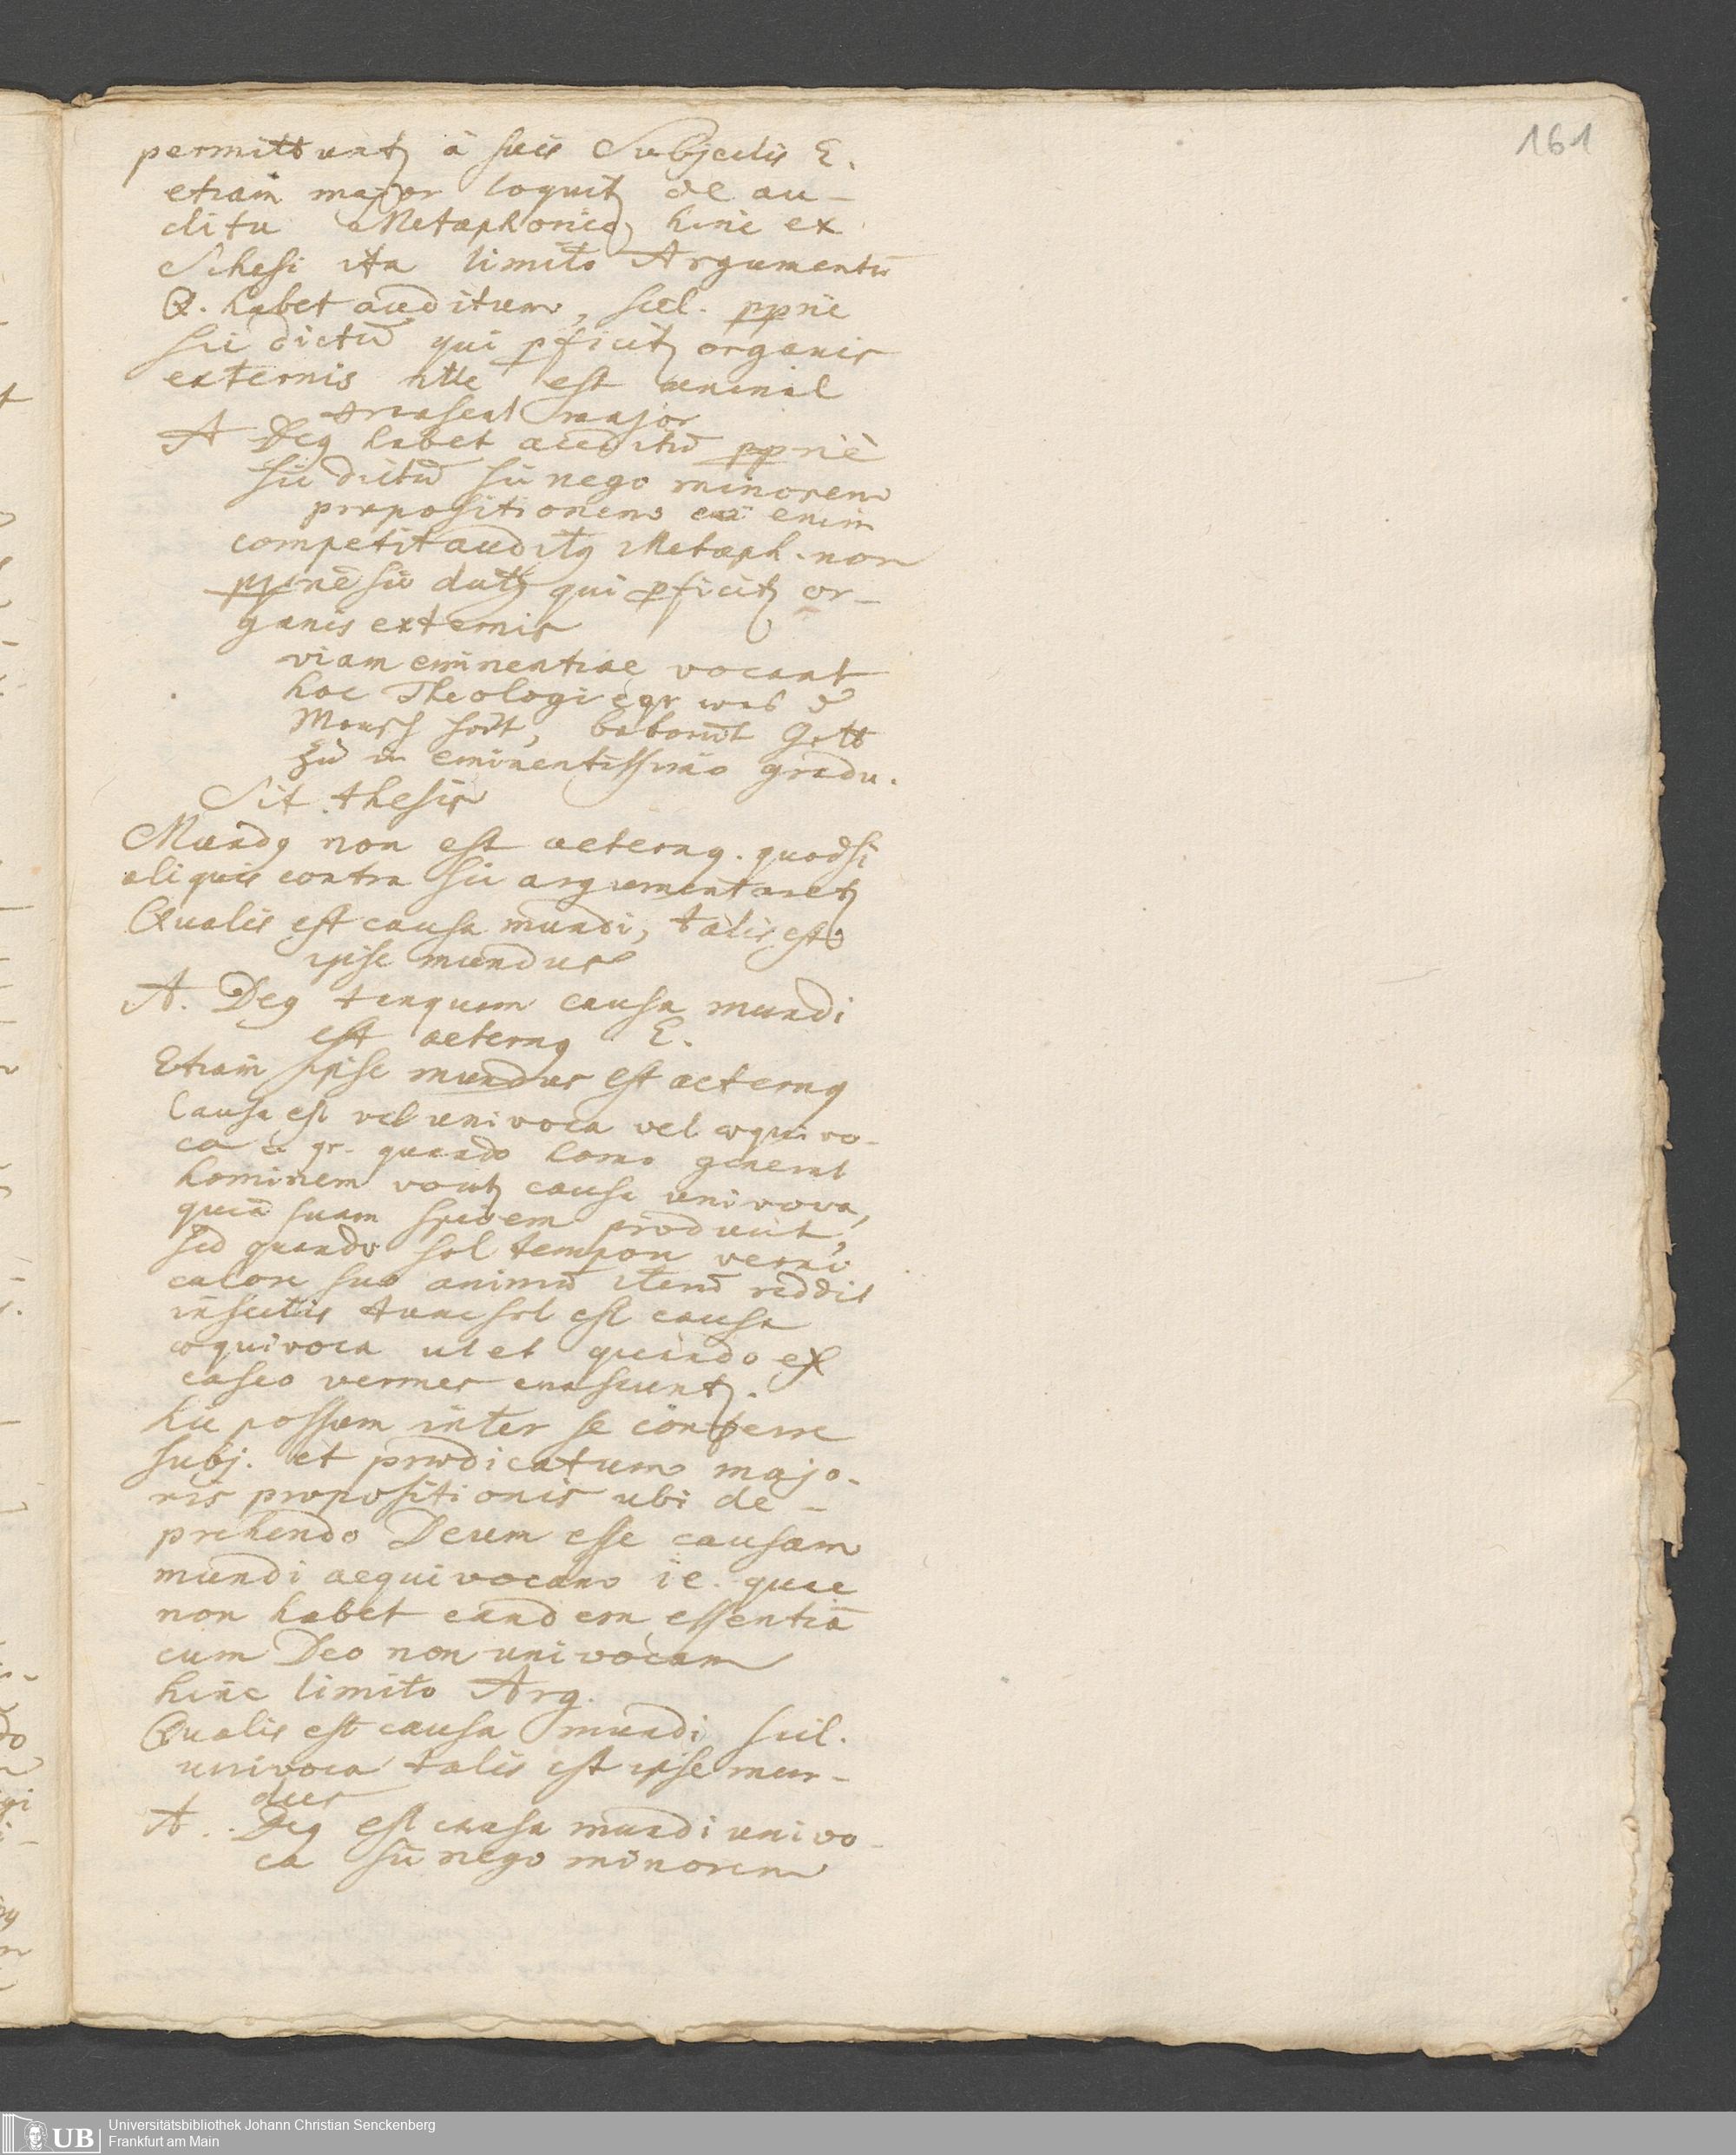 161
permittuntꝫ à suis Subjectis E.
etiam major loquitꝫ de au-
ditu Metaphorico, hinc ex
Schesi ita limito Argumentū
Q. habet auditum, scil. pprie
sic dictū qui pficitꝫ organis
externis ille est animal
transeat major
A Deꝯ habet auditū ppriè
sic dictū sic nego minorem
propositionem enim
competit auditꝯ Metaph. non
ppriè sic dictꝯ qui pficitꝫ or-
ganis externis
viam eminentiae vocant
hoc Theologi e gr was d
Mensch hört, bekomt Gott
zu in eminentissimo gradu.
Sit thesis
Mundꝯ non est aeternꝯ. quodsi
aliquis contra sic argumentaretꝫ
Qualis est causa mundi, talis est
ipse mundus
A. Deꝯ tanquam causa mundi
est aeternꝯ E.
Etiam ipse mundus est aeternꝯ
Causa est vel univoca vel æquivo-
ca e. gr. quando homo generat
hominem vocatꝫ causa univoca,
quia suam speciem producit,
sed quando sol tempore verni
calore suo animū iterū reddit
insectis tunc sol est causa
æquivoca ut et quando ex
caseo vermes enascuntꝫ.
hic possum inter se conferre
subj. et prædicatum majo-
ris propositionis ubi de-
prehendo Deum esse causam
mundi aequivocam i e. quae
non habet eandem essentiā
cum Deo non univocam
hinc limito Arg.
Qualis est causa mundi scil.
univoca talis est ipse mun-
dus
A. Deꝯ est causa mundi univo-
ca sic nego minorem
UB
Universitätsbibliothek Johann Christian Senckenberg
Frankfurt am Main